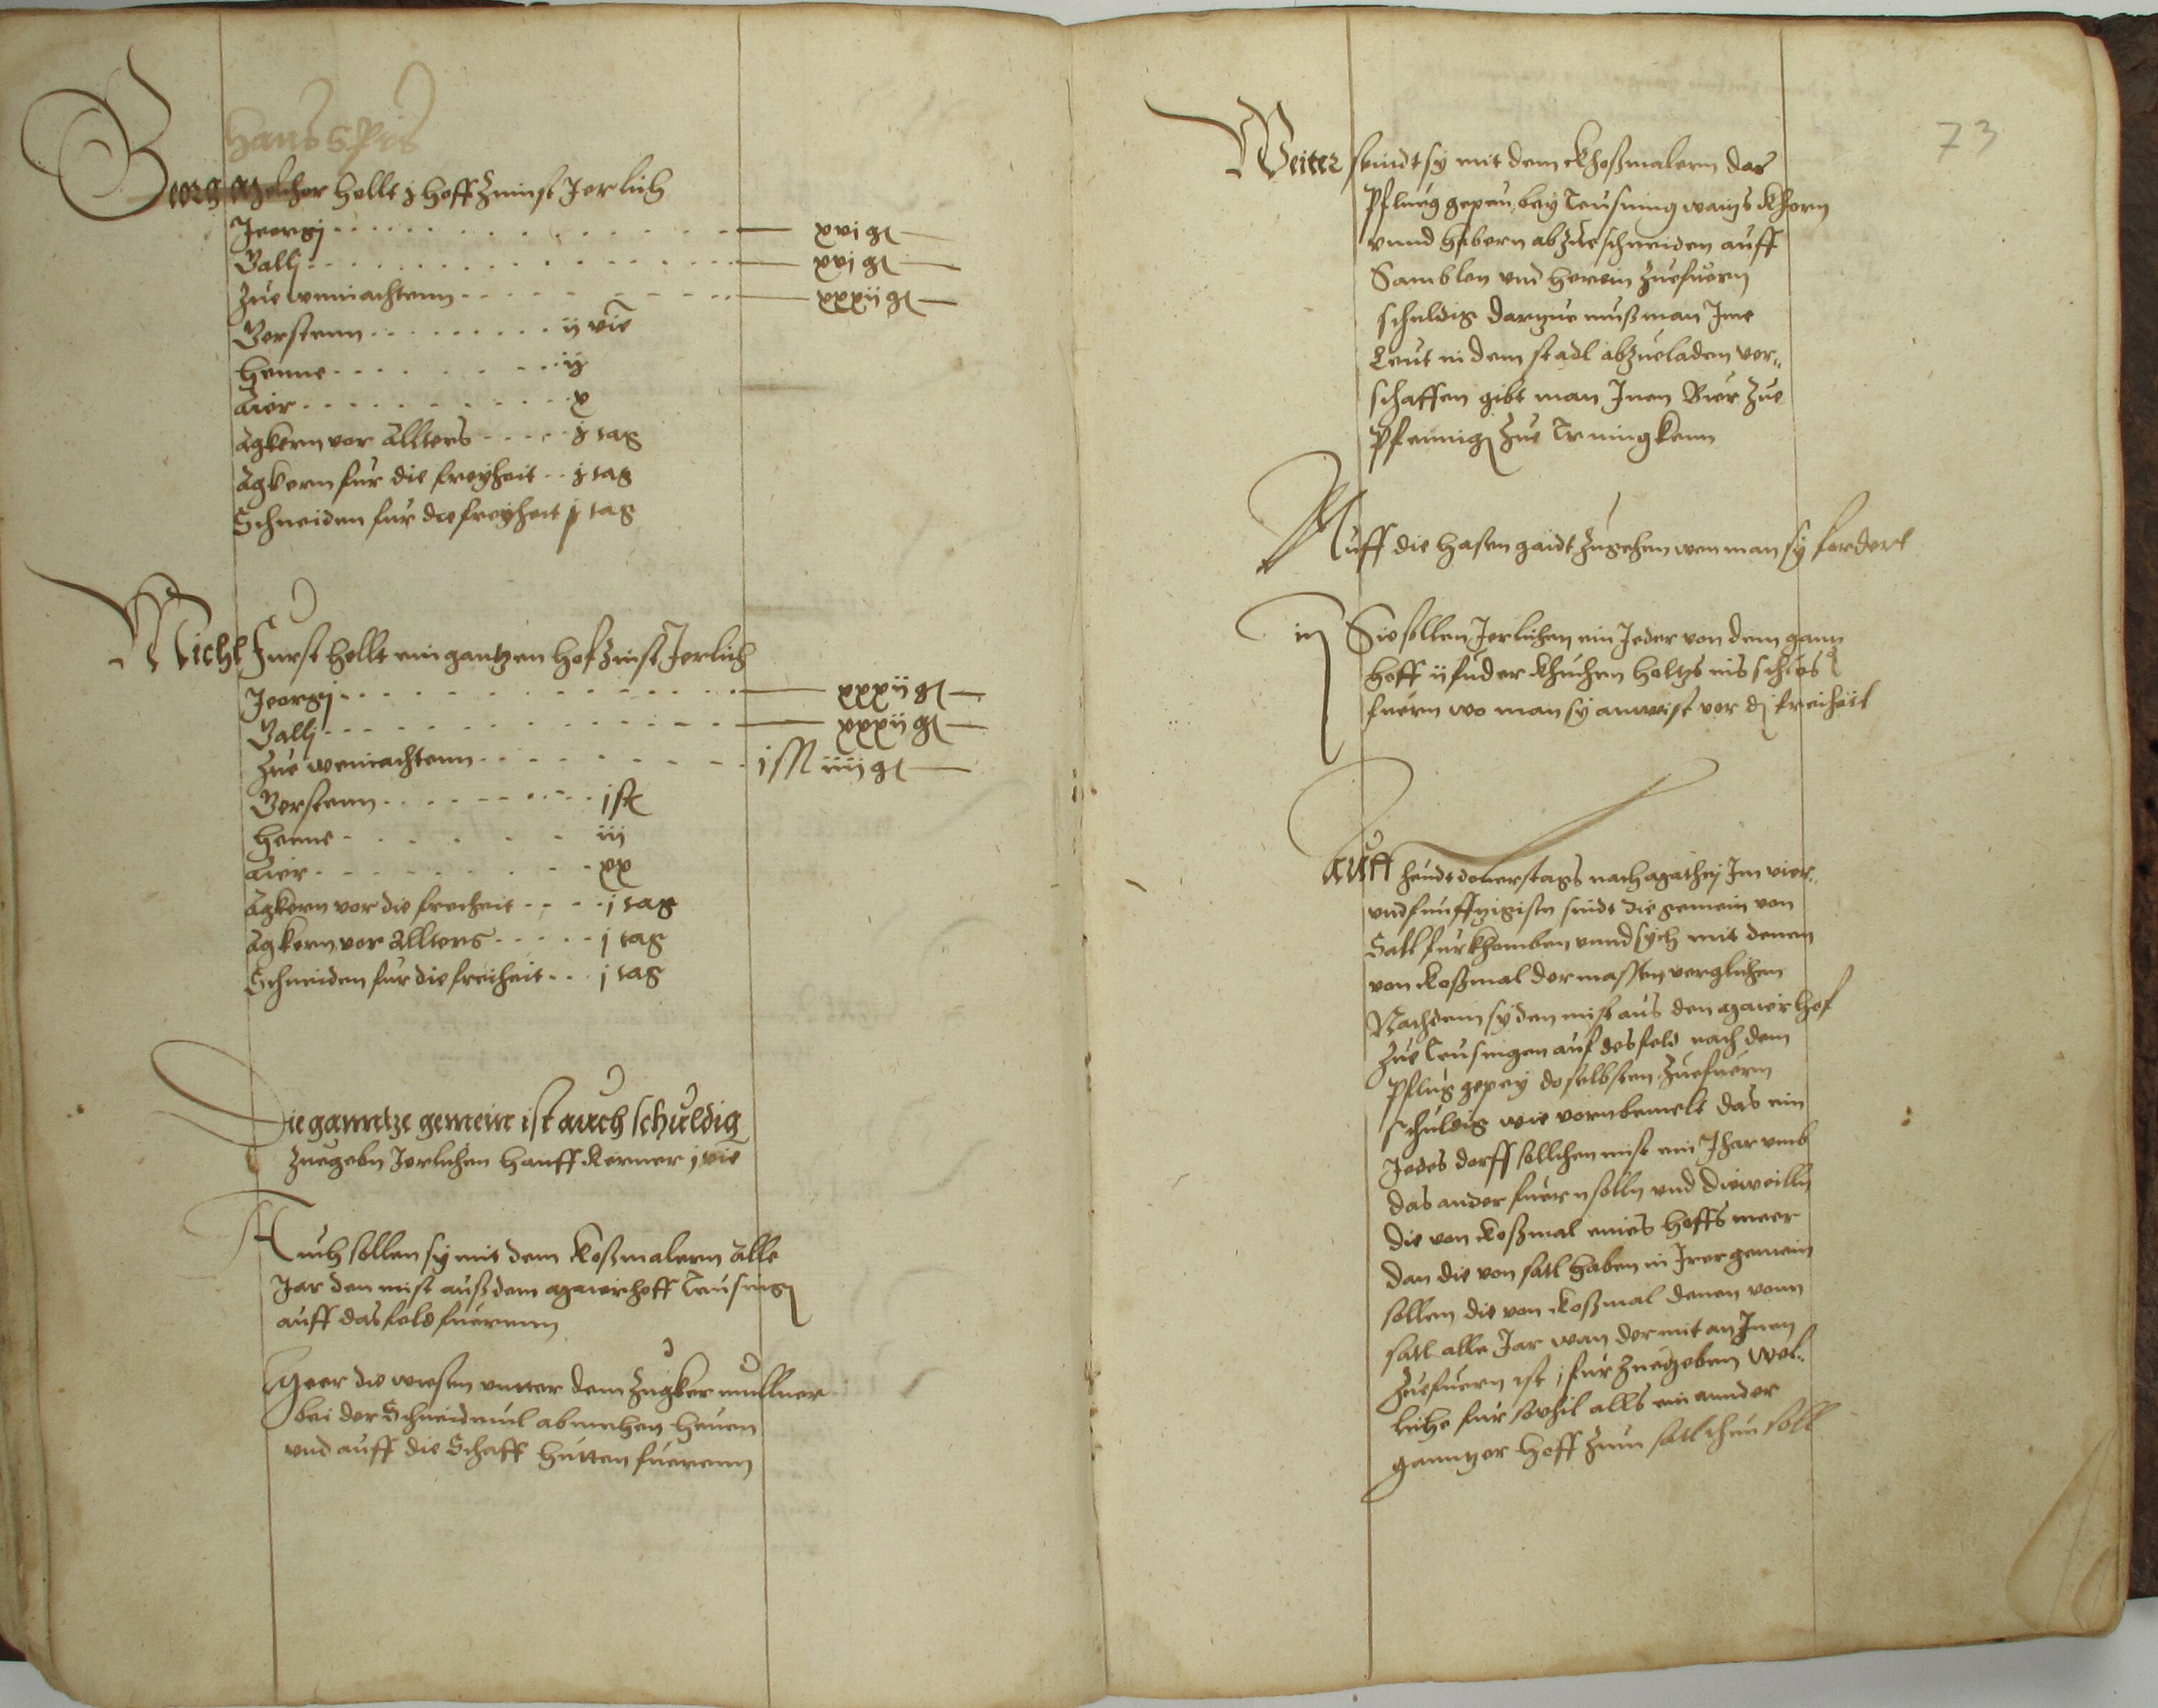 Hans Spis
Georg Melcher hellt ½ hoff Zinnst Jerlich
Jeorgj - - - - xvi gl
Gallj - - - - xvi gl
Zue weniachtenn - - - - xxxii gl
Gerstenn - - - - ij vie
Henne - - - - ij
Aier - - - - x
Agkern vor Allters - - - - ½ tag
Agkern fur die freyheit - - ½ tag
Schneiden fur die freyheit ½ tag
Michl Furst hellt ein gantzen hof Zinst Jerlich
Jeorgj - - - - xxxii gl
Gallj - - - - xxxii gl
Zue weniachtenn - - - - iiii gl
Gerstenn - - - - j st
Henne - - - - iij
Aier - - - - xx
Agkern vor die freiheit - - - - j tag
Agkern vor Allters - - - - j tag
Schneiden fur die freiheit - - - j tag
Die ganntze gemein ist auch schuldig
Zuegebn Jerlichen hanff Kerner j vie
Auch sollen sy mit dem Koßmalern alle
Jar den mist auß dem Maierhoff Teusing
auff das feld fuerenn
Meer die wiesen unter dem Zugkermullner
bei der Schneidmul abmehen heuen
und auff die Schaff hutten fuerenn
73
Weiter seindt sy mit dem Khoßmalern das
Pflueg gepeu bey Teusning waitz Khorn
unnd habern abzueschneiden auff
Samblen und herein Zuefuern
schuldig darzue muß man Jme
Leut in dem stadl abzueladen ver„
schaffen gibt man Jnen Bier Zue
Pfennig Zue Trningkenn
Auff die hasen gaidt Zugehen wen man sy fordert
Sie sollen Jerlichen ein Jeder von dem gann
hoff ii fuder Khuchen holtzs ins schlos
fuern wo man sy anweist vor dj freiheit
Auff heudt donerstags nach agathej Jm vier„
undfunffzigistn sindt die gemein von
Satl fur khomben unnd sych mit denen
von Koßmal dermassen verglichen
Nachdem sy den mist aus den Maierhof
Zue Teusingen auf des feld nach dem
Pflug gepey doselbsten Zuefuern
schuldig wie vornbemelt das ein
Jedes dorff sollchen mist ein Jhar umb
das ander fuern solln und dieweilln
die von Koßmal eines hoffs meer
dan die von satl haben in Jrer gemein
sollen die von Koßmal denen vonn
satl alle Jar wan der mit an Jnen
Zuefuern ist j fur Zuegeben wel„
liche fur sovhil alls ein annder
ganntzer hoff Zum satl thun soll